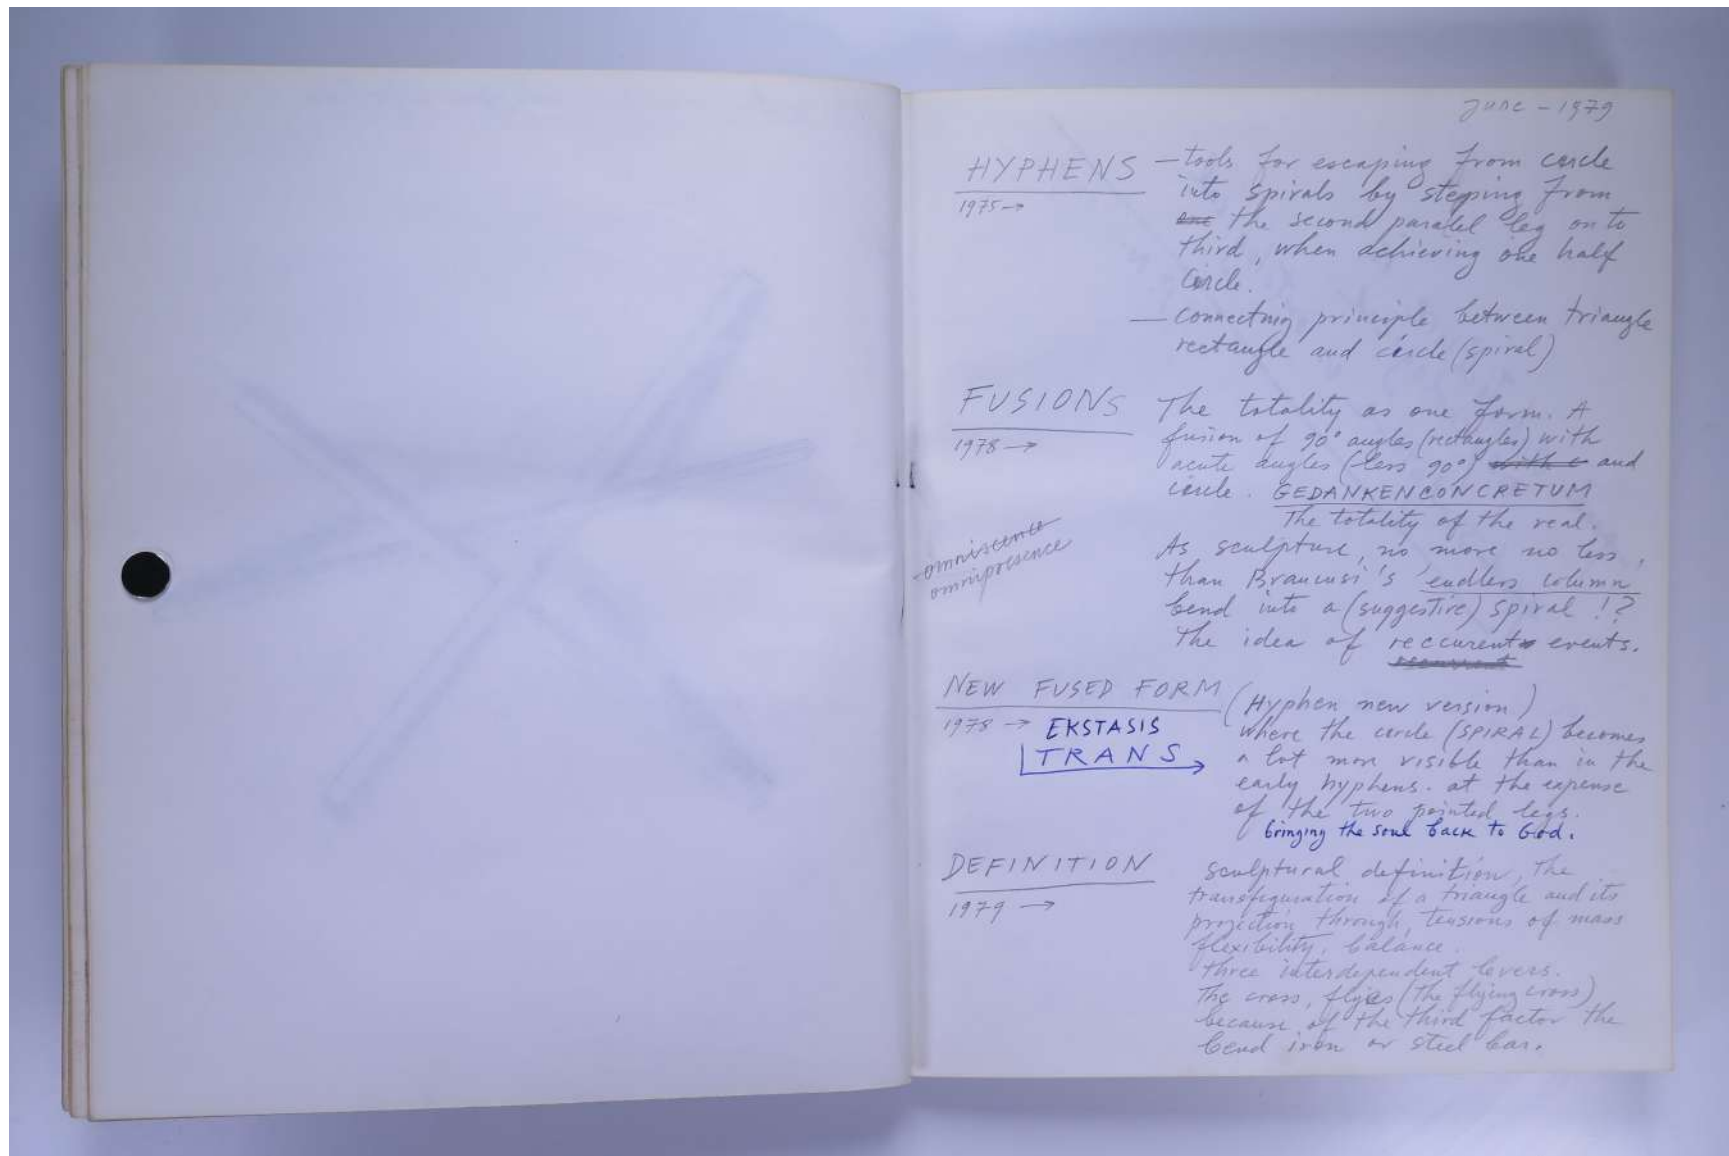 June - 1979
HYPHENS — tools for escaping from circle
1975 → into spirals by stepping from
one the second paralel leg on to
third, when achieving one half
Circle.
— connecting principle between triangle
rectangle and circle (spiral)
FUSIONS The totality as one form. A
1978 → fusion of 90° angles (rectangles) with
acute angles (less 90°) with c and
circle. GEDANKENCONCRETUM
The totality of the real.
omniscence
omnipresence
As sculpture, no more no less,
than Brancusi's 'endless column
bend into a (suggestive) spiral !?
The idea of reccurent events.
NEW FUSED FORM (Hyphen new version)
1978 → EKSTASIS where the circle (SPIRAL) becomes
TRANS → a lot more visible than in the
early hyphens. at the expense
of the two pointed legs.
bringing the soul back to God.
DEFINITION sculptural definition, the
1979 → transfiguration of a triangle and its
projection through, tensions of mass
flexibility, balance.
three interdependent levers.
The cross, flyes (the flying cross)
because of the third factor the
bend iron or steel bar.